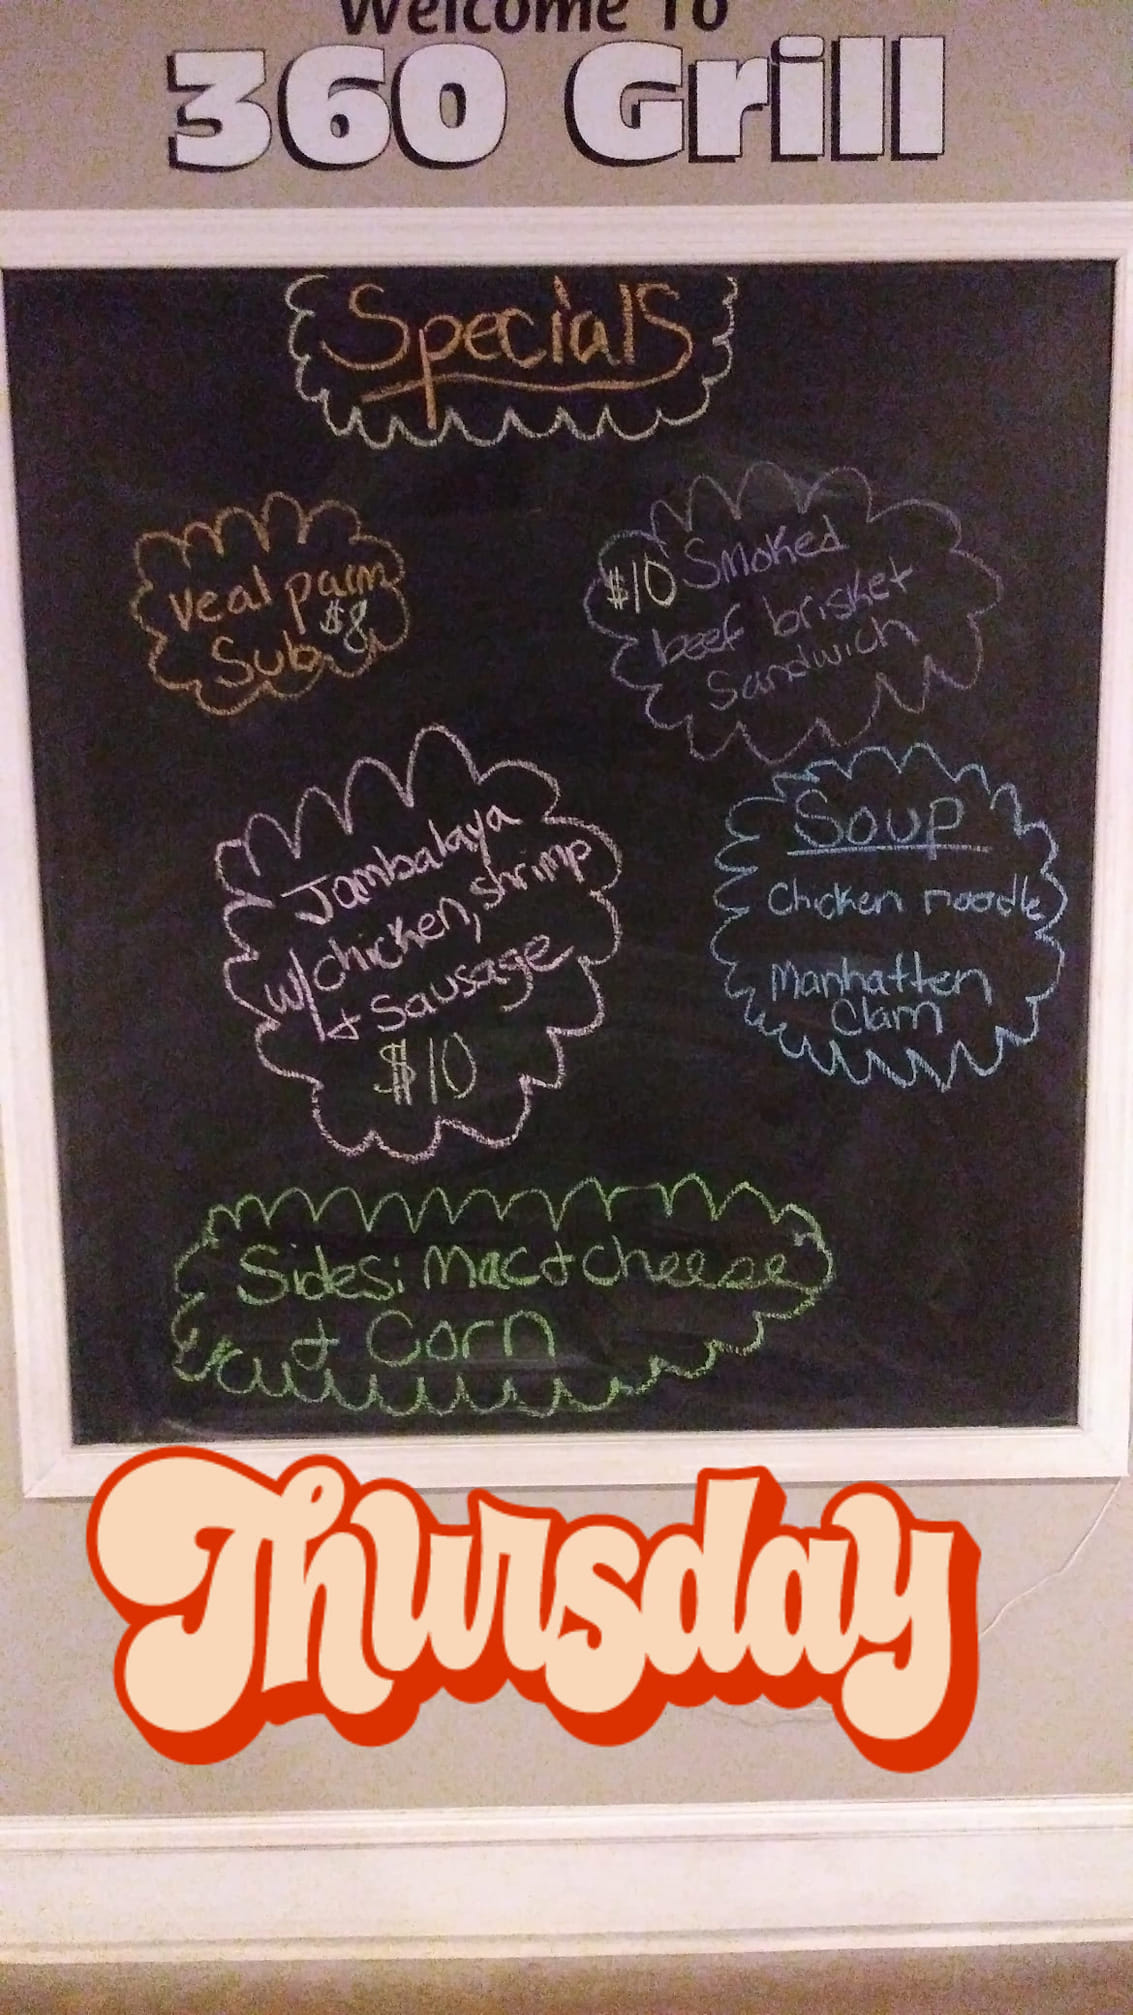 Welcome To
360 Grill
Specials
Veal parm
$8
Sub
$10 Smoked
beef brisket
Sandwich
Jambalaya
w/chicken, shrimp
+ Sausage
$10
Soup
Chicken noodle
Manhatten
Clam
Sides: Mac + cheese
+ Corn
Thursday